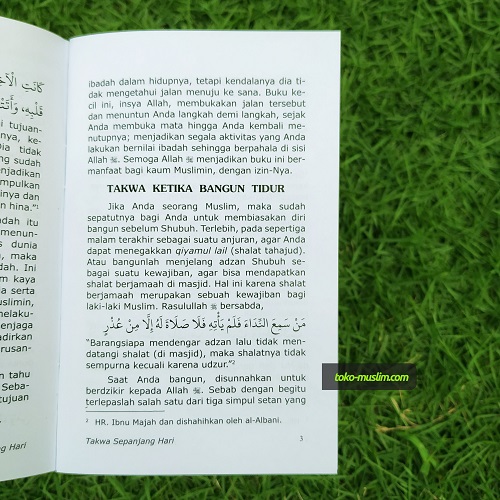 كَانَتِ
قَلْبِهِ،
i tujuan-
nya, ke-
Dia tidak
g sudah
njadikan
mpulkan
inya dan
n hina."¹
adah itu
menun-
s dunia
, maka
dah. Ini
m kaya
a serta
uslimin,
melaku-
enjaga
adirkan
rusan-
n tahu
Seba-
tujuan
g Hari
ibadah dalam hidupnya, tetapi kendalanya dia ti-
dak mengetahui jalan menuju ke sana. Buku ke-
cil ini, insya Allah, membukakan jalan tersebut
dan menuntun Anda langkah demi langkah, sejak
Anda membuka mata hingga Anda kembali me-
nutupnya; menjadikan segala aktivitas yang Anda
lakukan bernilai ibadah sehingga berpahala di sisi
Allah ﷻ. Semoga Allah ﷻ menjadikan buku ini ber-
manfaat bagi kaum Muslimin, dengan izin-Nya.
TAKWA KETIKA BANGUN TIDUR
Jika Anda seorang Muslim, maka sudah
sepatutnya bagi Anda untuk membiasakan diri
bangun sebelum Shubuh. Terlebih, pada sepertiga
malam terakhir sebagai suatu anjuran, agar Anda
dapat menegakkan qiyamul lail (shalat tahajud).
Atau bangunlah menjelang adzan Shubuh se-
bagai suatu kewajiban, agar bisa mendapatkan
shalat berjamaah di masjid. Hal ini karena shalat
berjamaah merupakan sebuah kewajiban bagi
laki-laki Muslim. Rasulullah ﷺ bersabda,
مَنْ سَمِعَ النِّدَاءَ فَلَمْ يَأْتِهِ فَلَا صَلَاةَ لَهُ إِلَّا مِنْ عُذْرٍ
"Barangsiapa mendengar adzan lalu tidak men-
datangi shalat (di masjid), maka shalatnya tidak
sempurna kecuali karena udzur."²
Saat Anda bangun, disunnahkan untuk
berdzikir kepada Allah ﷻ. Sebab dengan begitu
terlepaslah salah satu dari tiga simpul setan yang
² HR. Ibnu Majah dan dishahihkan oleh al-Albani.
Takwa Sepanjang Hari 3
toko-muslim.com